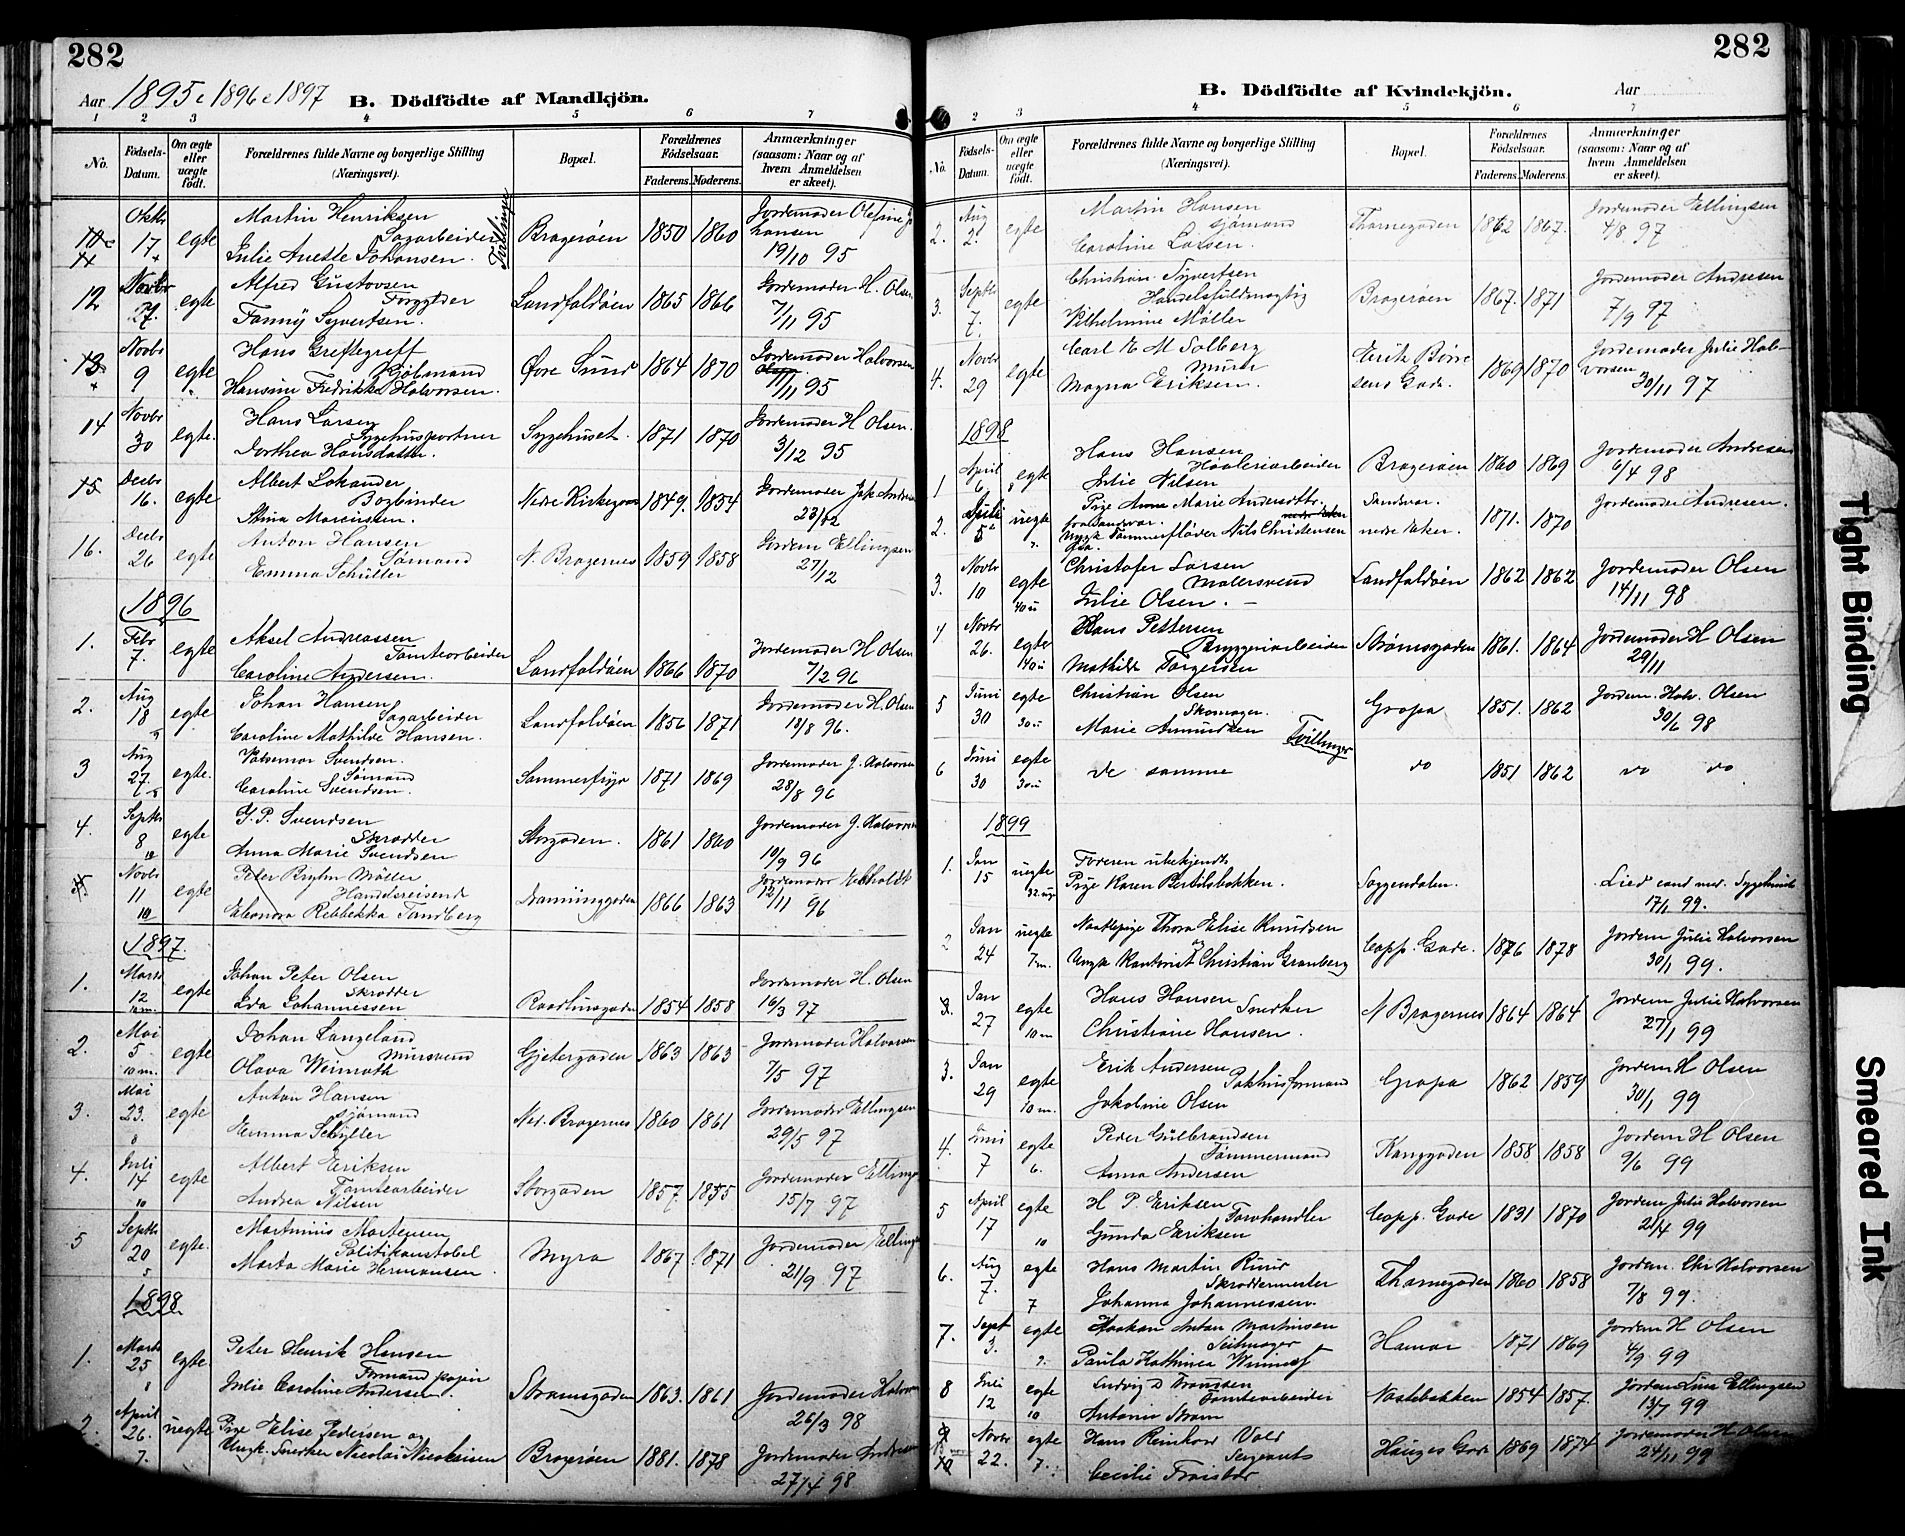 282
Aar 1895 & 1896 & 1897 B. Dödfödte af Mandkjön.
1 2 3 4 5 6 7
No. Födsels-Datum. Om ægte eller uægte födt. Forældrenes fulde Navne og borgerlige Stilling (Næringsvei). Bopæl. Forældrenes Fødselsaar. Faderens. Moderens. Anmærkninger (saasom: Naar og af hvem Anmeldelsen er skeet).
Oktbr 17 egte Martin Henriksen Sagarbeider Tvillinger Bragerøen 1850 1860 Jordemoder Olefine Johansen
Julie Anette Johansen. 19/10 95
12 Novbr 27. egte Alfred Gustavsen Forgylder Landfaldøen 1865 1866 Jordemoder H. Olsen
Fanny Syvertsen. 7/11 95
13 Novbr 9 egte Hans Greftegreff Kjøbmand Øvre Sund 1864 1870 Jordemoder Halvorsen
Hansine Fredrikke Halvorsen. 11/11 95
14 Novbr 30 egte. Hans Larsen Sygehusportner Sygehuset. 1871 1870 Jordemoder H Olsen.
Dorthea Hansdatter. 3/12 95
15 Decbr 16. egte Albert Johander Bogbinder Nedre Kirkegade 1849. 1854 Jordemoder Andresen
Stina Marcussen. 23/12
16. Decbr 26 egte Anton Hansen Sømand N. Bragernes 1859 1858 Jordem Ellingsen
Emma Schüller 27/12
1896
1. Febr 7. egte Aksel Andreassen Tomtearbeider Landfaldøen 1866 1870 Jordemoder H Olsen
Caroline Andersen. 7/2 96
2. Aug 18 egte Johan Hansen Sagarbeider Landfaldøen 1856 1871 Jordemoder H. Olsen
Caroline Mathilde Hansen. 18/8 96.
3 Aug 27. egte. Valdemar Svendsen. Sømand Sommerfryd 1871 1869 Jordemoder J. Halvorsen
Caroline Svendsen. 28/8 96
4. Septbr 8 egte G. P. Svendsen Skrædder Storgaden. 1861 1860 Jordemoder J. Halvorsen
Anna Marie Svendsen 10/9 96
Novbr 11 egte Peter Bryhn Møller Handelsreisend Dronninggaden 1866 1863 Jordemoder
Eleonora Rebbekka Tandberg 12/11 96
1897.
1. Marts 12 egte Johan Peter Olsen Skrædder Raadhusgaden 1854 1858 Jordemoder H. Olsen
Eda Johannessen 16/3 97
2. Mai 5 egte Johan Langeland Mursvend Gjetergaden 1863 1863 Jordemoder Halvorsen
Olava Weimoth 7/5 97
3. Mai 23. egte Anton Hansen sjømand Ned. Bragernes 1860 1861 Jordemoder Ellingsen
Emma Schüller 29/5 97
4. Juli 14 egte Albert Eriksen Tomtearbeider Storgaden 1857. 1855 Jordemoder Ellingsen
Andrea Nilsen 15/7 97
5 Septbr 20 egte. Martinius Mortensen Politikonstabel Myra 1867 1871 Jordemoder Ellingsen
Marta Marie Hermansen. 21/9 97
1898.
1. Marts 25 egte. Peter Henrik Hansen Formand papir Strømsgaden 1863. 1861 Jordemoder Halvorsen
Julie Caroline Andersen. 26/3 98
2. April 26. uegte Pige Elise Pedersen og
Ungk. Snedker Nicolai Nicolaisen Bragerøen 1881. 1878 Jordemoder Andresen
27/4 98
282
B. Dödfödte af Kvindekjön. Aar
2 3 4 5 6 7
No. Födsels-Datum. Om ægte eller uægte födt. Forældrenes fulde Navne og borgerlige Stilling (Næringsvei). Bopæl. Forældrenes Fødselsaar. Faderens. Moderens. Anmærkninger (saasom: Naar og af hvem Anmeldelsen er skeet).
2. Aug 2. egte Martin Hansen sjømand Thornegaden 1862 1867. Jordemoder Ellingsen
Caroline Larsen. 4/8 97
3. Septbr 7. egte Christian Syvertsen Handelsfuldmægtig Bragerøen 1867. 1871 Jordemoder Andresen
Vilhelmine Møller 7/9 97
4. Novbr 29 egte Carl E M Solberg Murer Erik Børresens Gade. 1869 1870 Jordemoder Julie Halvorsen
Magna Eriksen. 30/11 97
1898
1 April 6 egte Hans Hansen Høvleriarbeider Bragerøen 1860 1869 Jordemoder Andresen
Julie Nilsen 6/4 98
2. Juli 5 uegte Pige Anna Marie Andersdtr. Sandvær. 1871. 1870 Jordemoder Andresen.
fra Sandvær. Ungk Tømmerfløder Nils Christensen nedre
3. Novbr 10 egte Christofer Larsen Malersvend Landfaldøen 1862 1862 Jordemoder Olsen
Julie Olsen. 14/11 98
4 Novbr 26. egte Hans Pettersen Bryggeriarbeider Strømsgaden 1861. 1864 Jordemoder H Olsen
Mathilde Torgersen 29/11
5 Juni 30 egte Christian Olsen Skomager. Gropa 1851. 1862 Jordem. Halv. Olsen
Marie Amundsen Tvillinger 30/6 98
6 Juni 30 egte de samme do 1851 1862 do do
1899
1. Jan 15 uegte Faderen ubekjendt
Pige Karen Bertilsbakken. Soggendalen. Lied cand med. Sygehuset 17/1 99.
2 Jan 24 uegte Naatlepige Thora Elise Knudsen
Ungk Kontorist Christian Granberg Copp. Gade. 1876 1878 Jordem Julie Halvorsen 30/1 99.
Jan 27 egte Hans Hansen Snedker N Bragernes 1864 1864 Jordem Julie Halvorsen
Christiane Hansen. 27/1 99
3. Jan 29 egte Erik Andersen Pakhusformand Gropa 1862 1859 Jordem H Olsen
Jakobine Olsen 30/1 99
4. Juni 7 egte Peder Gulbrandsen Tømmermand Konggaden 1858. 1858 Jordem H Olsen
Anna Andersen 9/6 99
5 April 17 egte H P. Eriksen Farvhandler Copp. Gade 1831 1870 Jordem Julie Halvorsen
Gunda Eriksen 21/4 99
6. Aug 7. egte Hans Martin Ruud Skræddermester Thornegaden 1860 1858 Jordem. Chr Halvorsen
Johanna Johannessen. 7/8 99.
7. Sept 3. egte Haakon Anton Martinsen Seilmager Hamar 1871 1869 Jordem H Olsen
Paula Kathinca 4/9 99
8 Juli 12 egte Ludvig D Fransen Tomtearbeider Nostebakken 1854 1857. Jordem Lina Ellingsen
Antonie Strøm 13/7 99
Novbr 22. egte Hans Reinhard Vold Sergeant Hauges Gade 1869 1874 Jordemoder H Olsen
Cecilie 24/11 99
Tight Binding
Smeared Ink